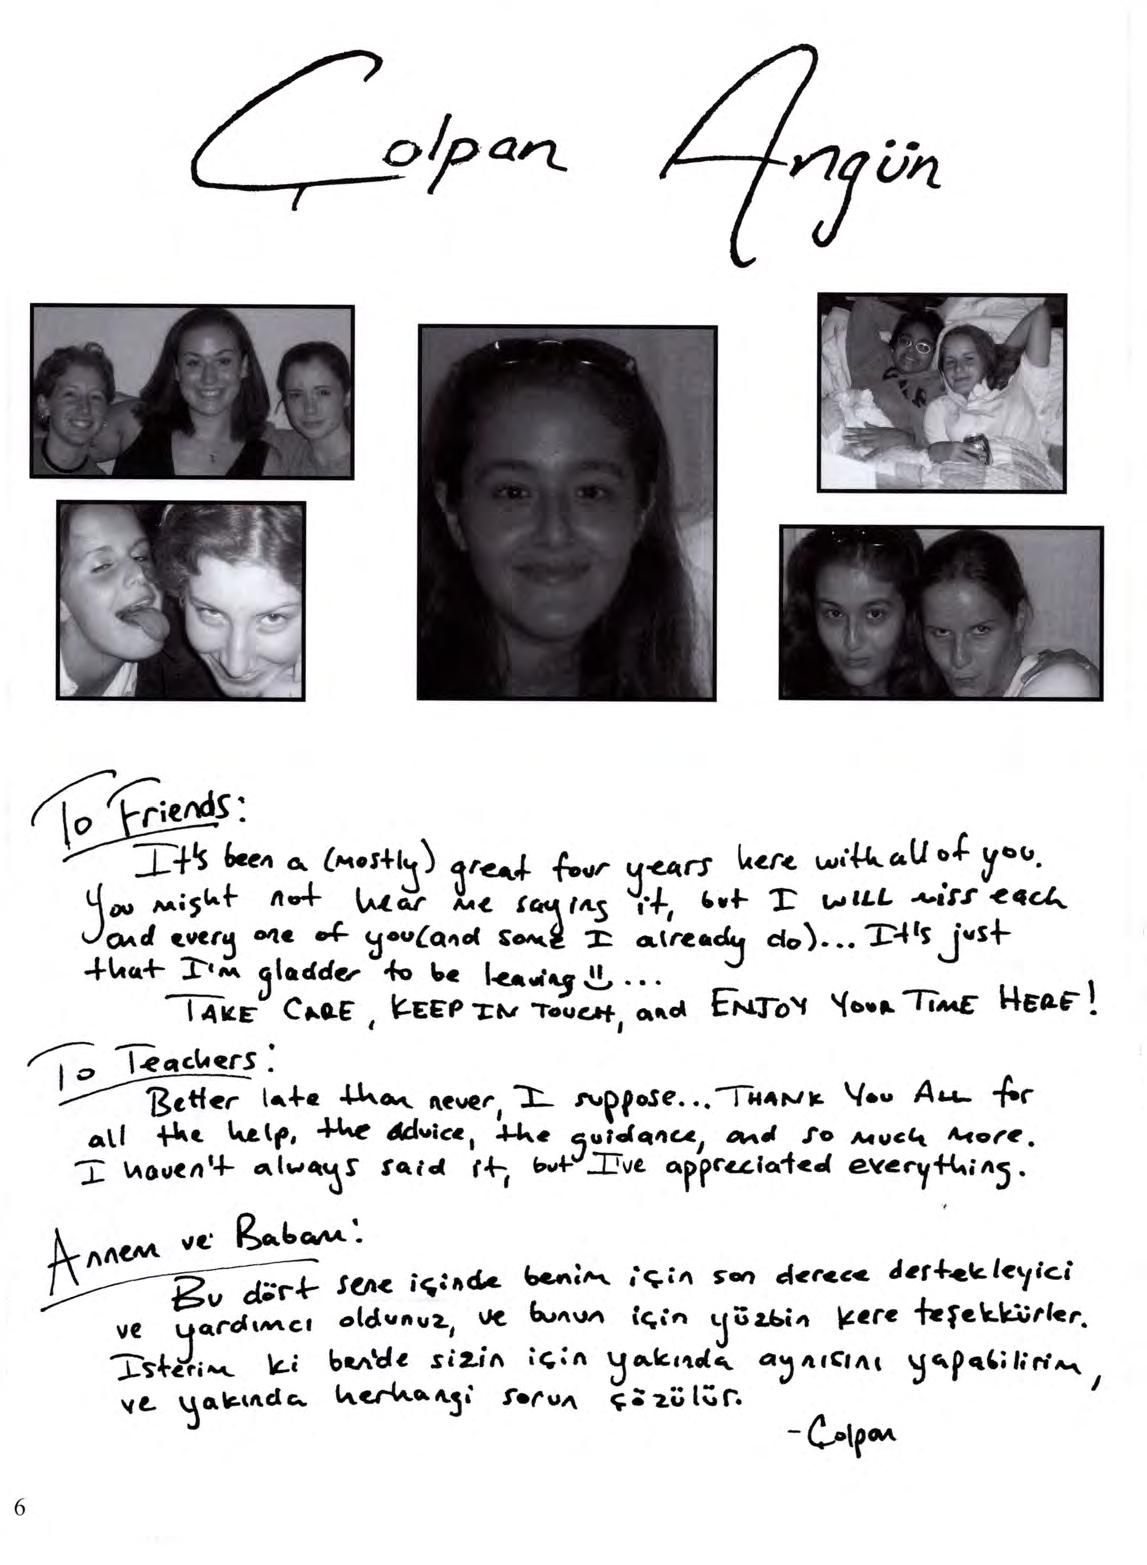 Çolpan Angün
To Friends:
It's been a (mostly) great four years here with all of you.
You might not hear me saying it, but I WILL miss each
and every one of you (and some I already do)... It's just
that I'm gladder to be leaving ...
TAKE CARE, KEEP IN TOUCH, and ENJOY YOUR TIME HERE!
To Teachers:
Better late than never, I suppose... THANK YOU ALL for
all the help, the advice, the guidance, and so much more.
I haven't always said it, but I've appreciated everything.
Annem ve Babam:
Bu dört sene içinde benim için son derece destekleyici
ve yardımcı oldunuz, ve bunun için yüzbin kere teşekkürler.
Isterim ki ben'de sizin için yakında aynısını yapabilirim,
ve yakında herhangi sorun çözülür.
- Çolpan
6